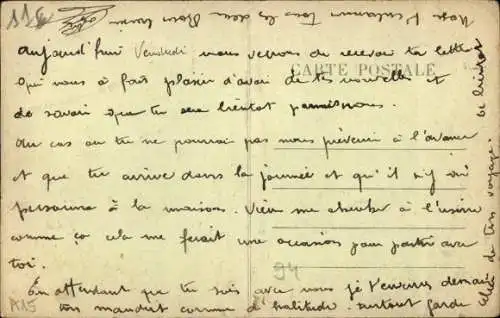 aujourd'hui Vendredi nous venons de recevoir ta lettre
qui nous a fait plaisir d'avoir de tes nouvelles et
CARTE POSTALE
de savoir que tu sera bientot parmis nous.
Au cas ou tu ne pourrai pas nous prévenir à l'avance
et que tu arrive dans la journée et qu'il n'y ai
personne à la maison. Viens me chercher à l'usine
comme ça cela me ferait une occasion pour partir avec
toi.
94
En attendant que tu sois avec nous je t'envoies demain
ton mandat comme d'habitude. surtout garde
A15
de ton voyage.
tous les deux Bons baisers
115